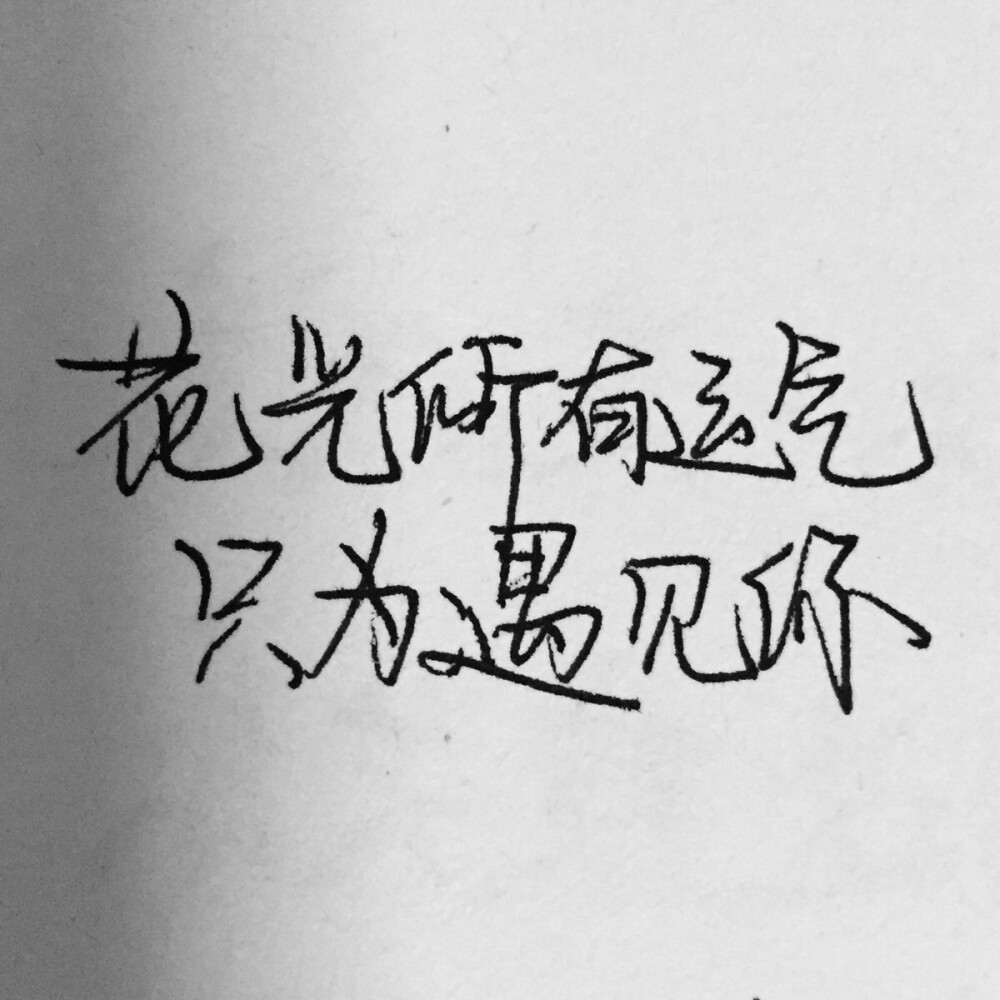 花光所有运气
只为遇见你